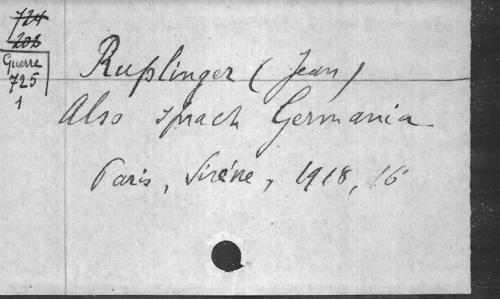 724
202
Guerre
725
1
Rußlinger (Jean)
Also sprach Germania
Paris, Sirène, 1918, 16°